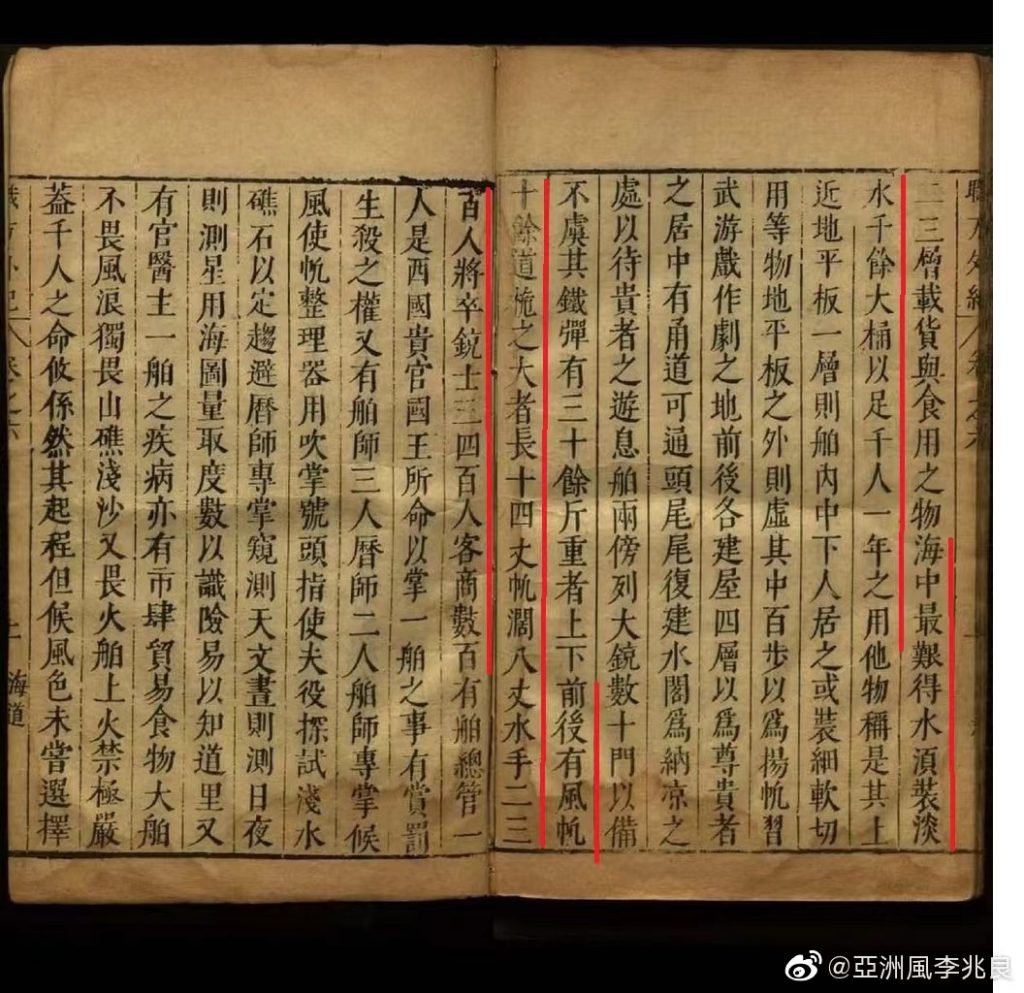 職方外紀 卷之六
二三層載貨與食用之物海中最艱得水湏裝淡
水千餘大桶以足千人一年之用他物稱是其上
近地平板一層則舶內中下人居之或裝細軟切
用等物地平板之外則虛其中百步以爲揚帆習
武游戲作劇之地前後各建屋四層以爲尊貴者
之居中有甬道可通頭尾尾復建水閣爲納凉之
處以待貴者之遊息舶兩傍列大銃數十門以備
不虞其鐵彈有三十餘斤重者上下前後有風帆
十餘道桅之大者長十四丈帆濶八丈水手二三
百人將卒銃士三四百人客商數百有舶總管一
人是西國貴官國王所命以掌一舶之事有賞罰
生殺之權又有舶師三人曆師二人舶師專掌候
風使帆整理器用吹掌號頭指使夫役探試淺水
礁石以定趨避曆師專掌窺測天文晝則測日夜
則測星用海圖量取度數以識險易以知道里又
有官醫主一舶之疾病亦有市肆貿易食物大舶
不畏風浪獨畏山礁淺沙又畏火舶上火禁極嚴
葢千人之命攸係然其起程但候風色未嘗選擇
海道
@亞洲風李兆良